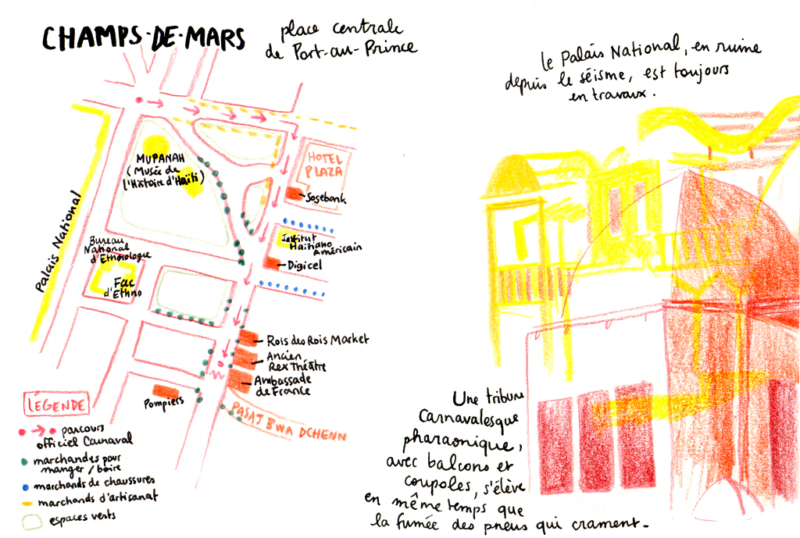 CHAMPS-DE-MARS
place centrale
de Port-au-Prince
MUPANAH
(Musée de
l'Histoire d'Haïti)
HOTEL
PLAZA
Sogebank
Palais National
Bureau
National
d'Ethnologue
Fac
d'Ethno
Institut
Haïtiano
Américain
Digicel
Rois des Rois Market
Ancien
Rex Théâtre
Ambassade
de France
Pompiers
PASAJ BWA DCHENN
LÉGENDE
parcours
officiel Carnaval
marchandes pour
manger / boire
marchands de chaussures
marchands d'artisanat
espaces verts
le Palais National, en ruine
depuis le séisme, est toujours
en travaux.
Une tribune
Carnavalesque
pharaonique,
avec balcons et
coupoles, s'élève
en même temps que
la fumée des pneus qui crament.